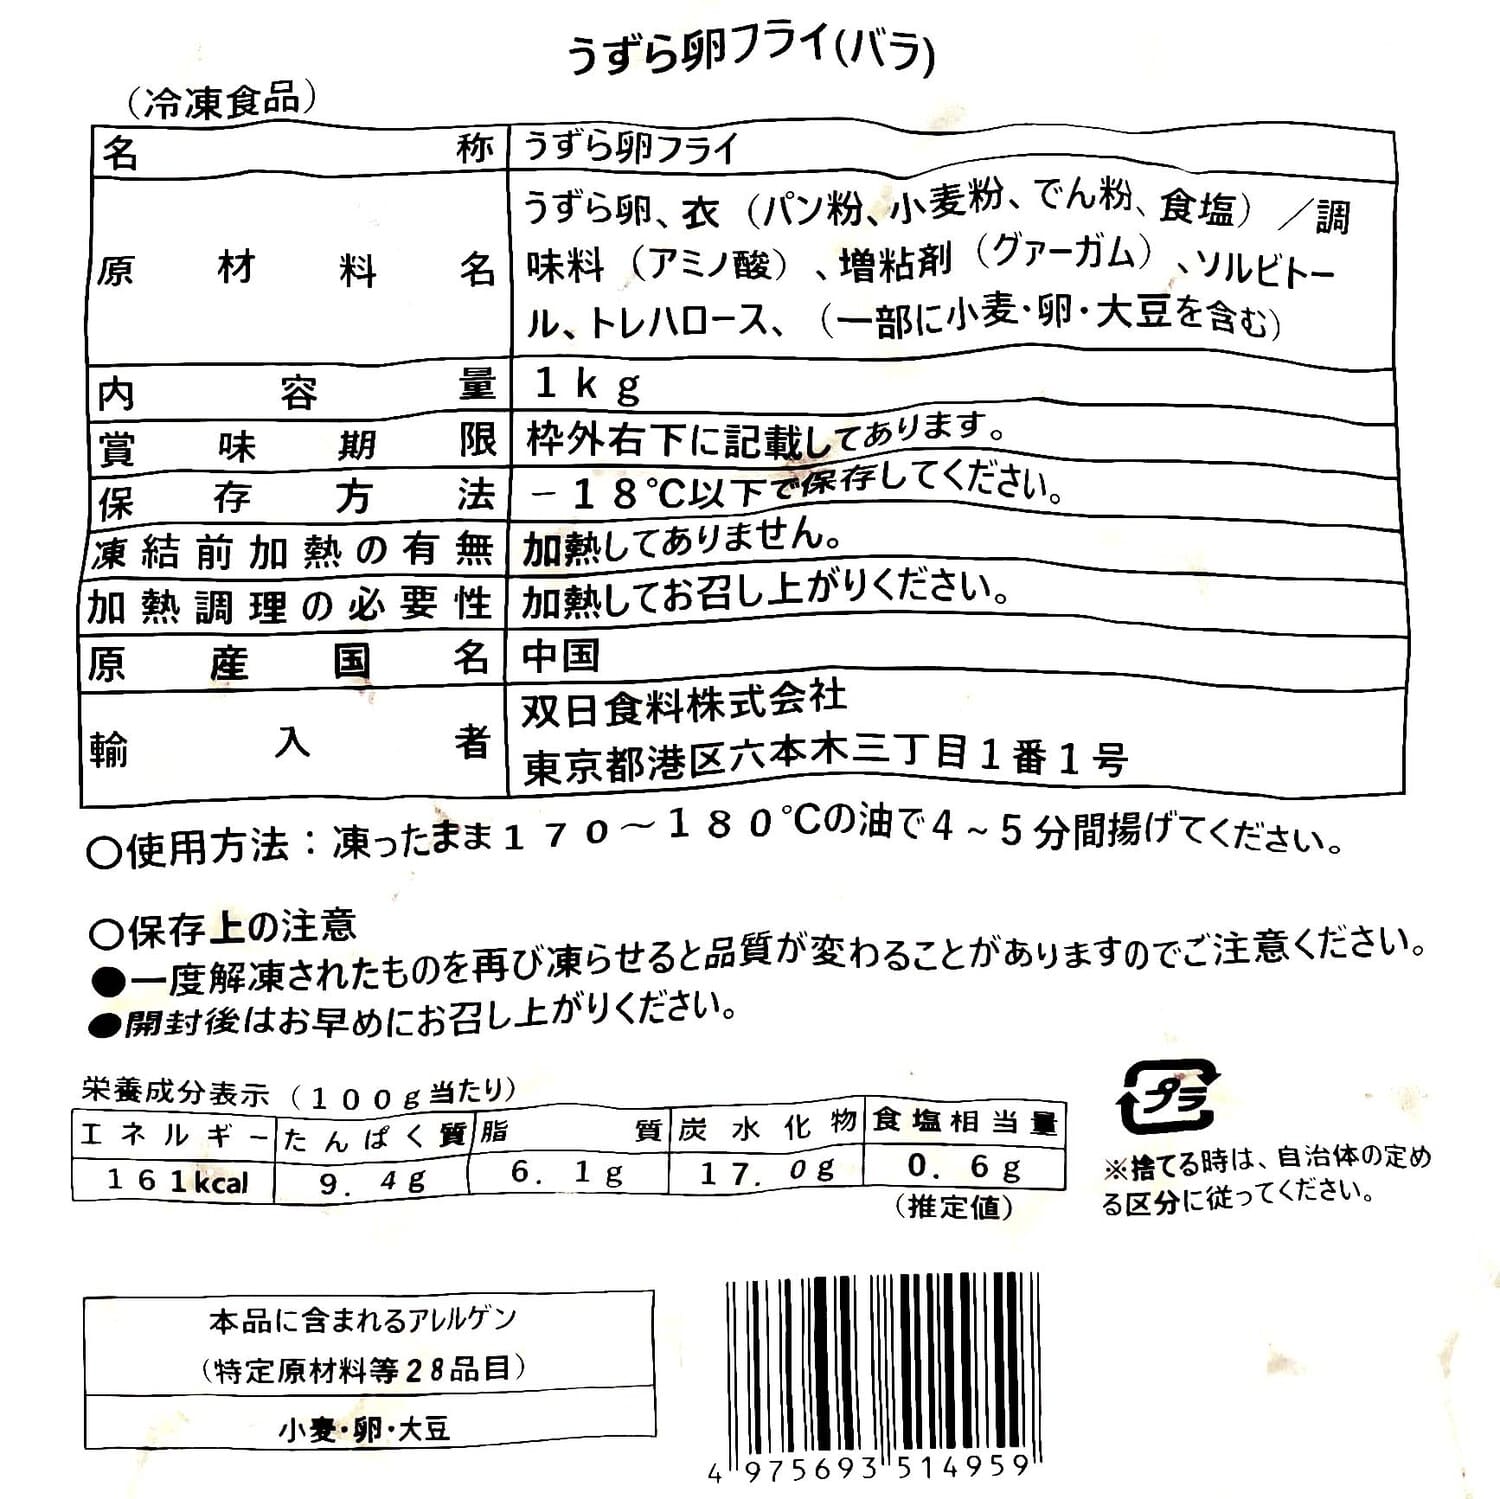 うずら卵フライ(バラ)
（冷凍食品）
名称 うずら卵フライ
原材料名 うずら卵、衣（パン粉、小麦粉、でん粉、食塩）／調
味料（アミノ酸）、増粘剤（グァーガム）、ソルビトー
ル、トレハロース、（一部に小麦・卵・大豆を含む）
内容量 １ｋｇ
賞味期限 枠外右下に記載してあります。
保存方法 －１８℃以下で保存してください。
凍結前加熱の有無 加熱してありません。
加熱調理の必要性 加熱してお召し上がりください。
原産国名 中国
輸入者 双日食料株式会社
東京都港区六本木三丁目１番１号
○使用方法：凍ったまま１７０～１８０℃の油で４～５分間揚げてください。
○保存上の注意
●一度解凍されたものを再び凍らせると品質が変わることがありますのでご注意ください。
●開封後はお早めにお召し上がりください。
栄養成分表示（１００ｇ当たり）
エネルギー たんぱく質 脂質 炭水化物 食塩相当量
１６１kcal ９．４ｇ ６．１ｇ １７．０ｇ ０．６ｇ
（推定値）
プラ
※捨てる時は、自治体の定め
る区分に従ってください。
本品に含まれるアレルゲン
（特定原材料等２８品目）
小麦・卵・大豆
4 975693 514959